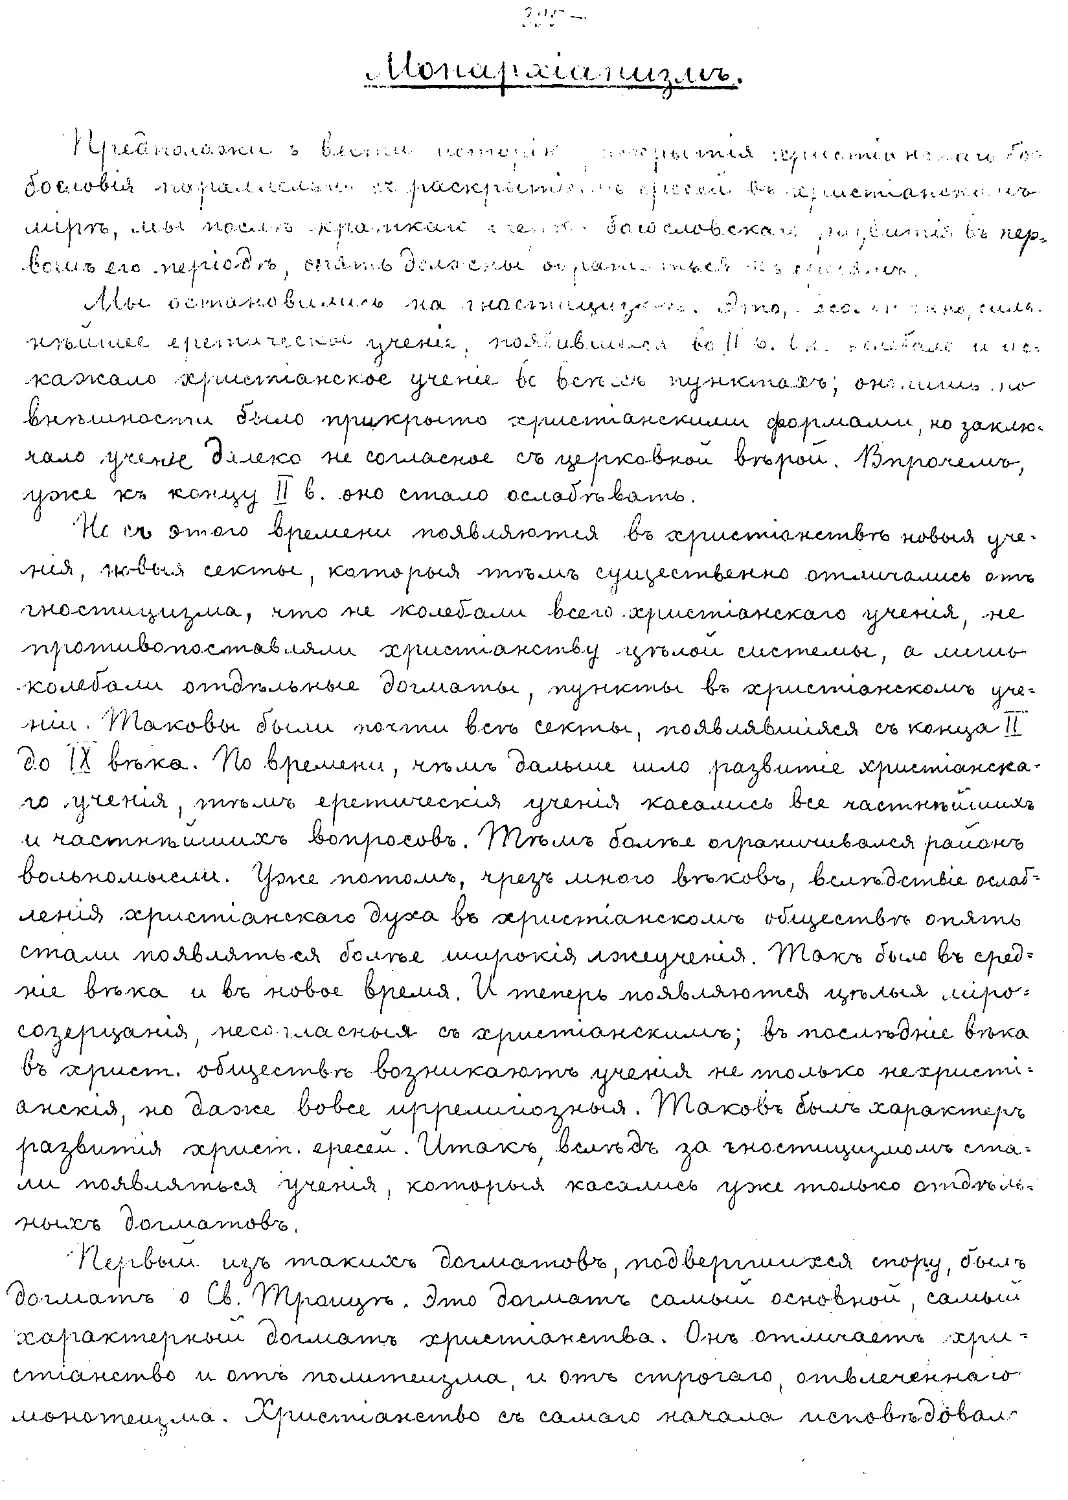 Монархіанизмъ.
Предположивъ вести исторію раскрытія христіанскаго бо-
гословія параллельно съ раскрытіемъ ересей въ христіанскомъ
мірѣ, мы послѣ краткаго очерка богословскаго развитія въ пер-
вомъ его періодѣ, опять должны обратиться къ ересямъ.
Мы остановились на гностицизмѣ. Это, безъ сомнѣнія, силь-
нѣйшее еретическое ученіе, появившееся во II в. Оно колебало и ис-
кажало христіанское ученіе во всѣхъ пунктахъ; оно лишь по
внѣшности было прикрыто христіанскими формами, но заклю-
чало ученіе далеко не согласное съ церковной вѣрой. Впрочемъ,
уже къ концу II в. оно стало ослабѣвать.
Но съ этого времени появляются въ христіанствѣ новыя уче-
нія, новыя секты, которыя тѣмъ существенно отличались отъ
гностицизма, что не колебали всего христіанскаго ученія, не
противопоставляли христіанству цѣлой системы, а лишь
колебали отдѣльные догматы, пункты въ христіанскомъ уче-
ніи. Таковы были почти всѣ секты, появлявшіяся съ конца II
до IX вѣка. По времени, чѣмъ дальше шло развитіе христіанска-
го ученія, тѣмъ еретическія ученія касались все частнѣйшихъ
и частнѣйшихъ вопросовъ. Тѣмъ болѣе ограничивался районъ
вольномысли. Уже потомъ, чрезъ много вѣковъ, вслѣдствіе ослаб-
ленія христіанскаго духа въ христіанскомъ обществѣ опять
стали появляться болѣе широкія лжеученія. Такъ было въ сред-
ніе вѣка и въ новое время. И теперь появляются цѣлыя міро-
созерцанія, несогласныя съ христіанскимъ; въ послѣдніе вѣка
въ христ. обществѣ возникаютъ ученія не только нехристі-
анскія, но даже вовсе иррелигіозныя. Таковъ былъ характеръ
развитія христ. ересей. Итакъ, вслѣдъ за гностицизмомъ ста-
ли появляться ученія, которыя касались уже только отдѣль-
ныхъ догматовъ.
Первый изъ такихъ догматовъ, подвергшихся спору, былъ
догматъ о Св. Троицѣ. Это догматъ самый основной, самый
характерный догматъ христіанства. Онъ отличаетъ хри-
стіанство и отъ политеизма, и отъ строгаго, отвлеченнаго
монотеизма. Христіанство съ самаго начала исповѣдовал